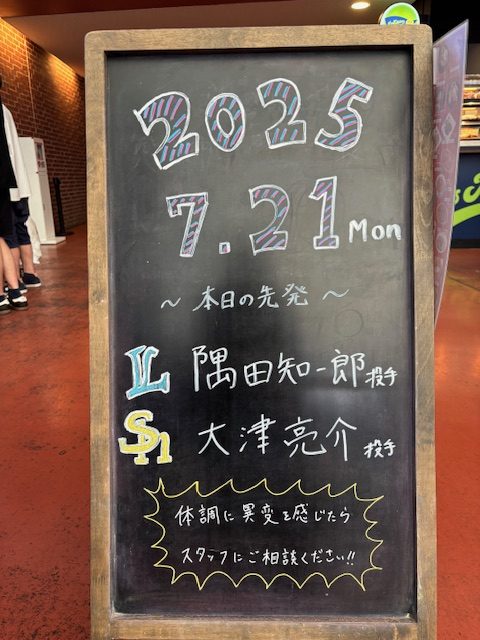 2025
7.21 Mon
～ 本日の先発 ～
L 隅田知一郎 投手
SH 大津亮介 投手
体調に異変を感じたら
スタッフにご相談ください!!